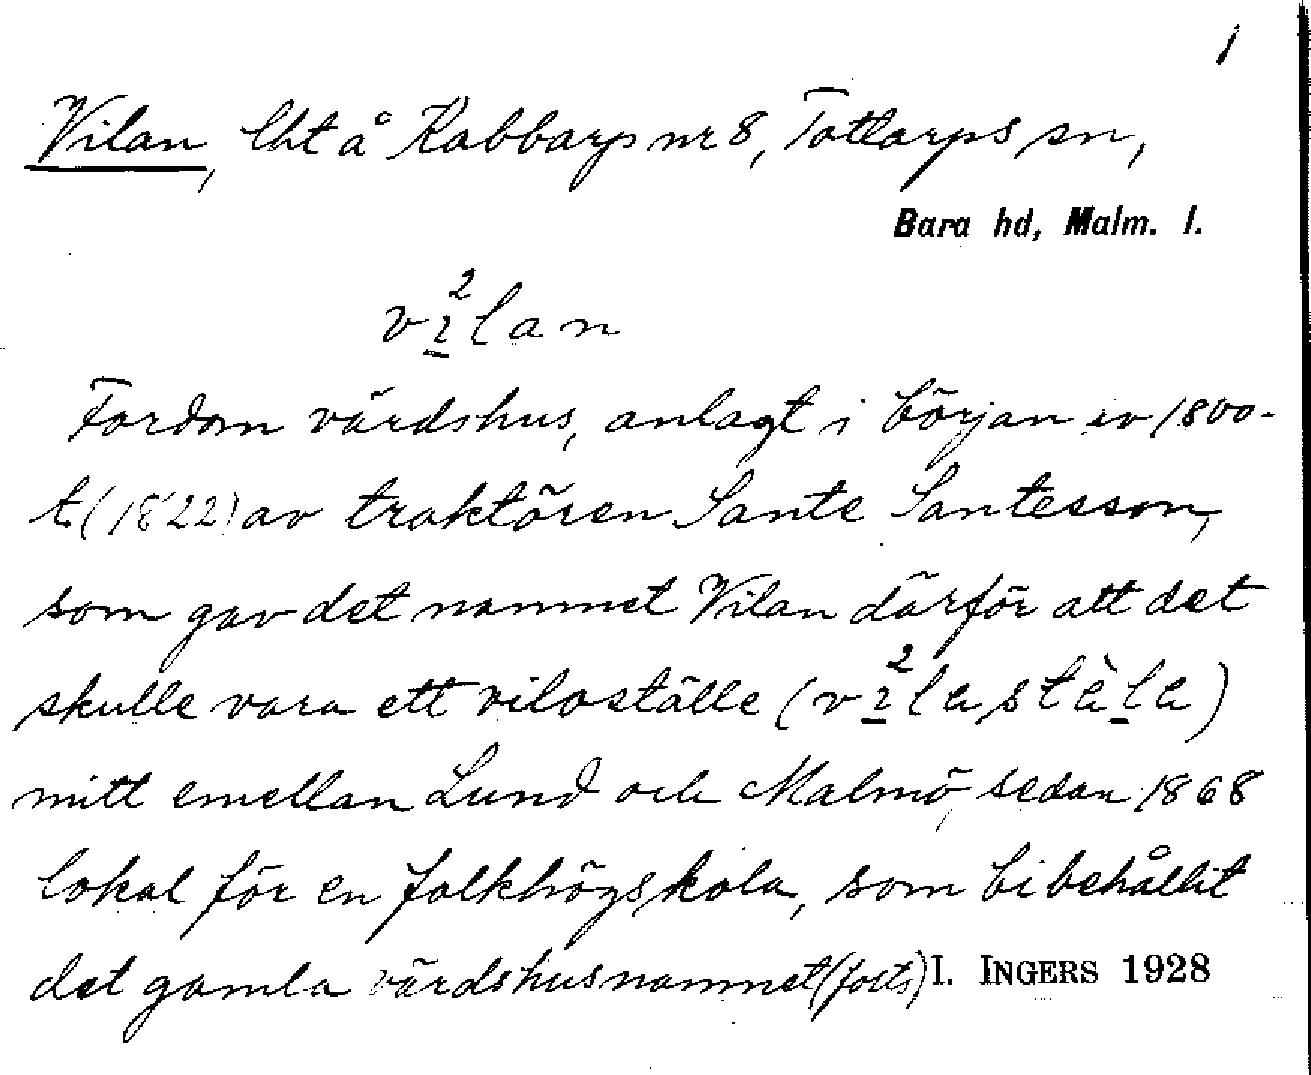 1
Vilan, lht å Kabbarp nr 8, Tottarps sn,
Bara hd, Malm. l.
v ɪ² l a n
Fordom värdshus, anlagt i början av 1800-
t. (1822) av traktören Sante Santesson,
som gav det namnet Vilan därför att det
skulle vara ett viloställe (
mitt emellan Lund och Malmö, sedan 1868
lokal för en folkhögskola, som bibehållit
det gamla värdshusnamnet (forts) I. INGERS 1928